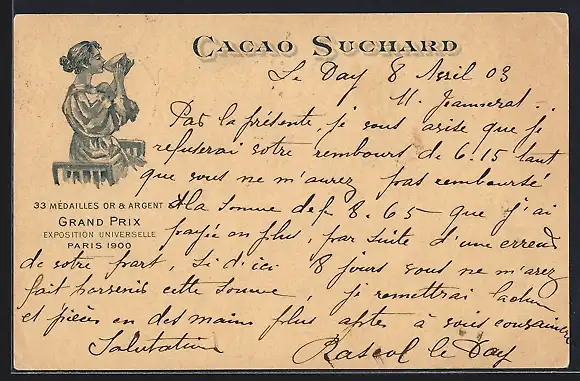 CACAO SUCHARD
Le Day 8 Avril 03
M. Jeanneret
Par la présente, je vous avise que je
refuserai votre rembours de 6.15 tant
que vous ne m'aurez pas remboursé
33 MÉDAILLES OR & ARGENT
GRAND PRIX
EXPOSITION UNIVERSELLE
PARIS 1900
la somme de f. 8.65 que j'ai
payée en plus, par suite d'une erreur
de votre part, si d'ici 8 jours vous ne m'avez
fait parvenir cette somme, je remettrai
et pièces en des mains plus aptes à vous convaincre
Salutation
Rascol le Day